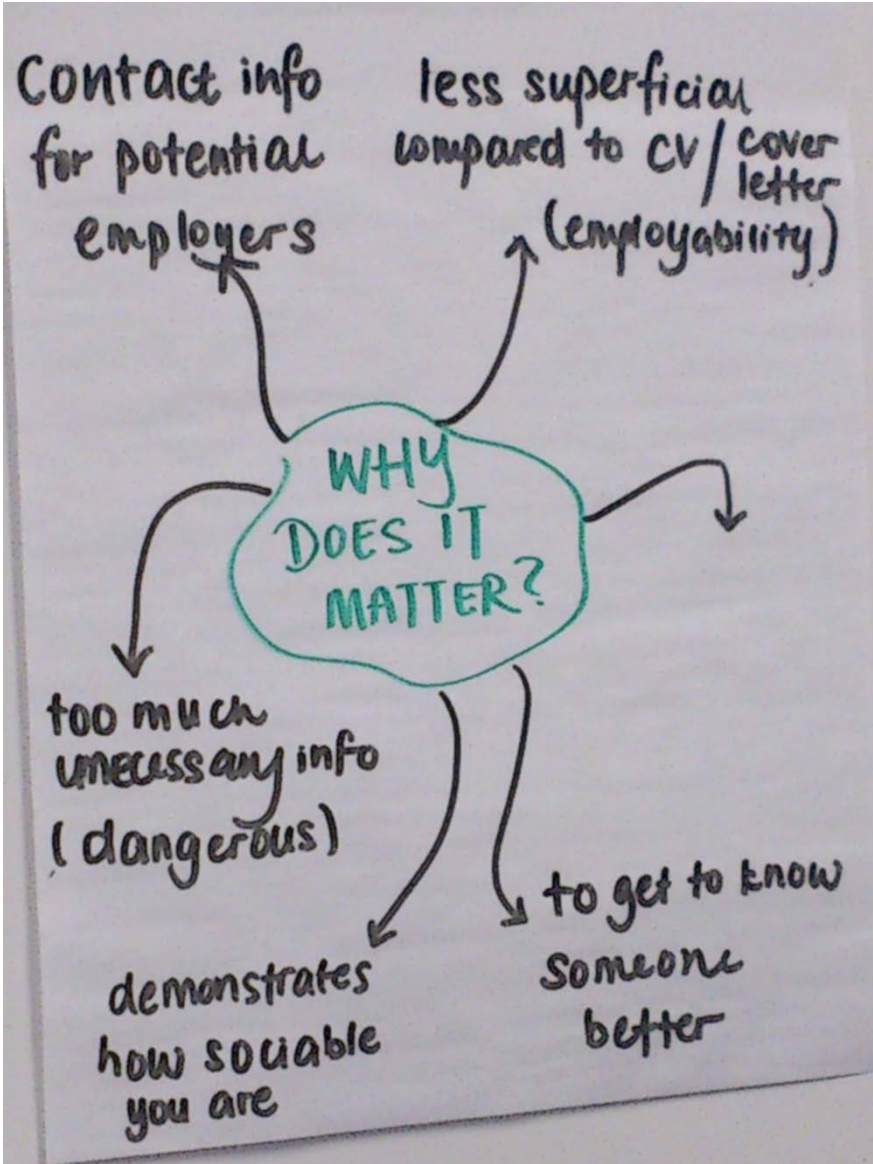 Contact info
for potential
employers
less superficial
compared to CV / cover
letter
(employability)
WHY
DOES IT
MATTER?
too much
unecessary info
(dangerous)
demonstrates
how sociable
you are
to get to know
someone
better